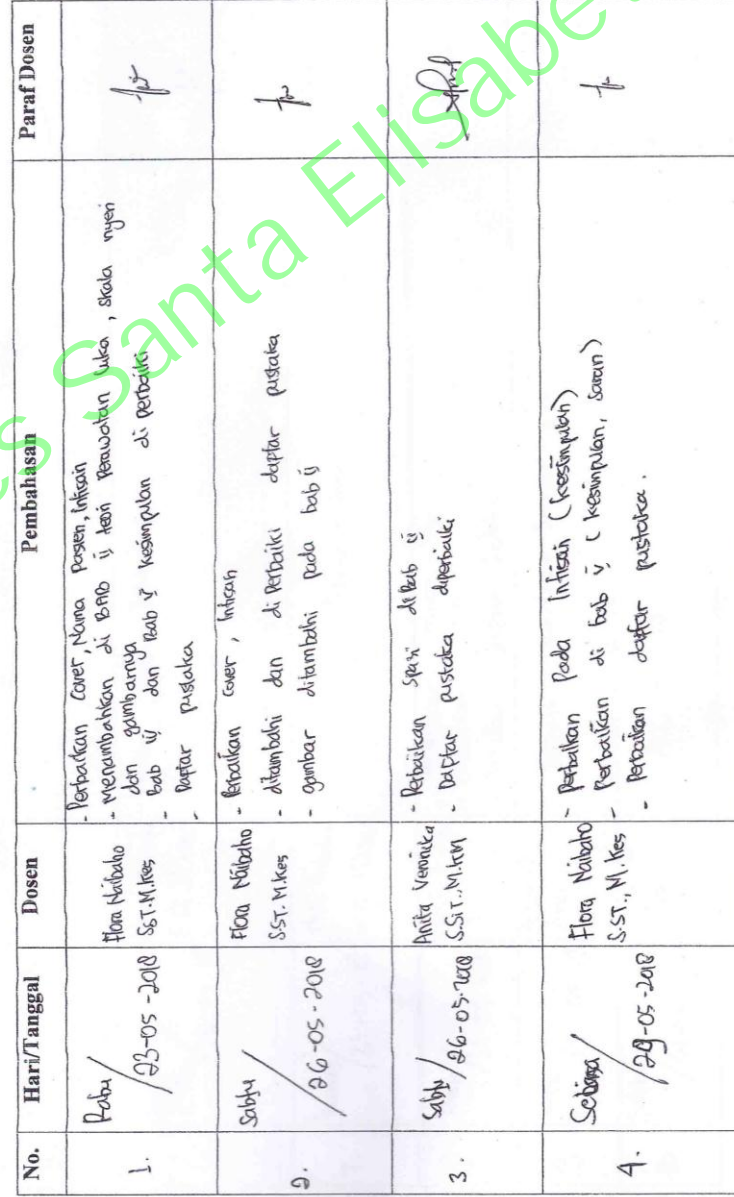 No. Hari/Tanggal Dosen Pembahasan Paraf Dosen
1. Rabu / 23-05-2018
Flora Naibaho
SST.M.Kes
- Perbaikan Cover, Nama Pasien, Intisari
- Menambahkan di BAB ij teori Perawatan Luka, skala nyeri
dan gambarnya
- Bab iij dan Bab V Kesimpulan di perbaiki
- Daptar pustaka
2. Sabtu / 26-05-2018
Flora Naibaho
S.ST. M.Kes
- Perbaikan Cover, Intisari
- ditambahi dan di Perbaiki daptar pustaka
- gambar ditambahi pada bab ij
3. Sabtu / 26-05-2018
Anita Veronika
S.SiT., M.KM
- Perbaikan spasi di Bab ij
- Daptar pustaka diperbaiki
4. Selasa / 29-05-2018
Flora Naibaho
S.ST., M. Kes
- Perbaikan Pada Intisari (kesimpulan)
- Perbaikan di bab V (kesimpulan, saran)
- Perbaikan daftar pustaka.
es Santa Elisabe